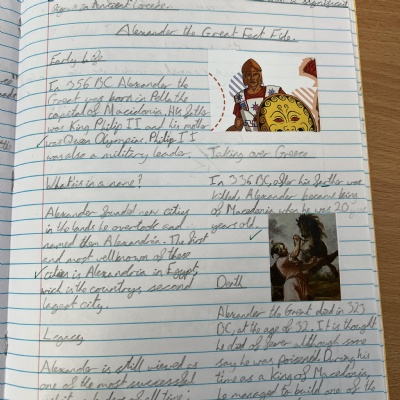 again in Ancient Greece.
Alexander the Great Fact File.
Early Life
In 356 BC Alexander the
Great was born in Pella the
capital of Macedonia. His father
was King Philip II and his mother
was Queen Olympias. Philip II
was also a military leader.
What's in a name?
Alexander founded new cities
in the lands he overtook and
named them Alexandria. The first
and most wellknown of these
cities is Alexandria in Egypt
wich is the countrys second
largest city.
Legacy
Alexander is still viewed as
one of the most successful
military leaders of all time.
Taking over Greece
In 336 BC, after his father was
killed, Alexander became king
of Macedonia when he was 20
years old.
Death
Alexander the Great died in 323
BC, at the age of 32. It is thought
he died of fever although some
say he was poisoned. During his
time as a King of Macedonia,
he managed to build one of the